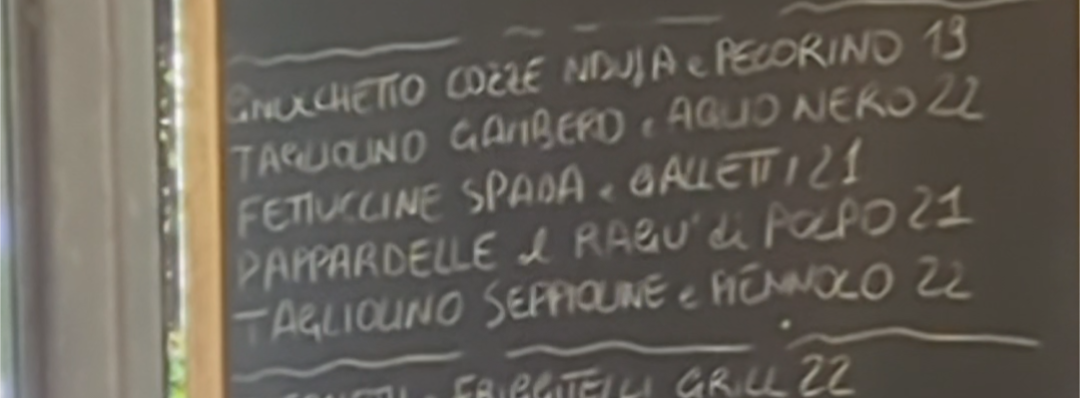 GNOCCHETTO COZZE NDUJA e PECORINO 19
TAGLIOLINO GAMBERO e AGLIO NERO 22
FETTUCCINE SPADA e GALLETTI 21
PAPPARDELLE e RAGU' di POLPO 21
TAGLIOLINO SEPPIOLINE e PIENNOLO 22
FRIGGITELLI GRILL 22